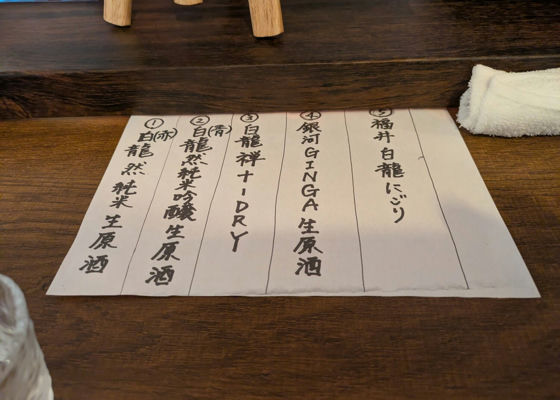 ① 白龍(赤) 然 純米 生原酒
② 白龍(青) 然 純米吟醸 生原酒
③ 白龍 禅 +-DRY
④ 銀河GINGA生原酒
⑤ 福井 白龍 にごり